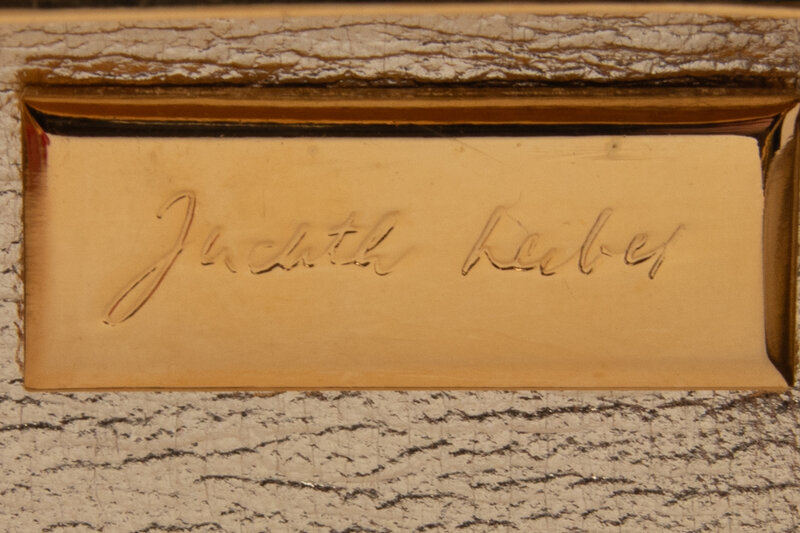 Judith Leiber